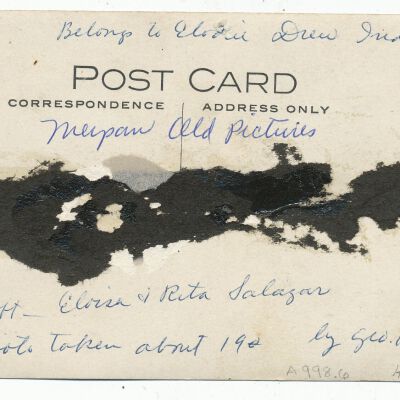 Belongs to Elodie Drew
POST CARD
CORRESPONDENCE ADDRESS ONLY
Old Pictures
Eloisa & Rita Salazar
taken about 19 by Geo.
A998.6